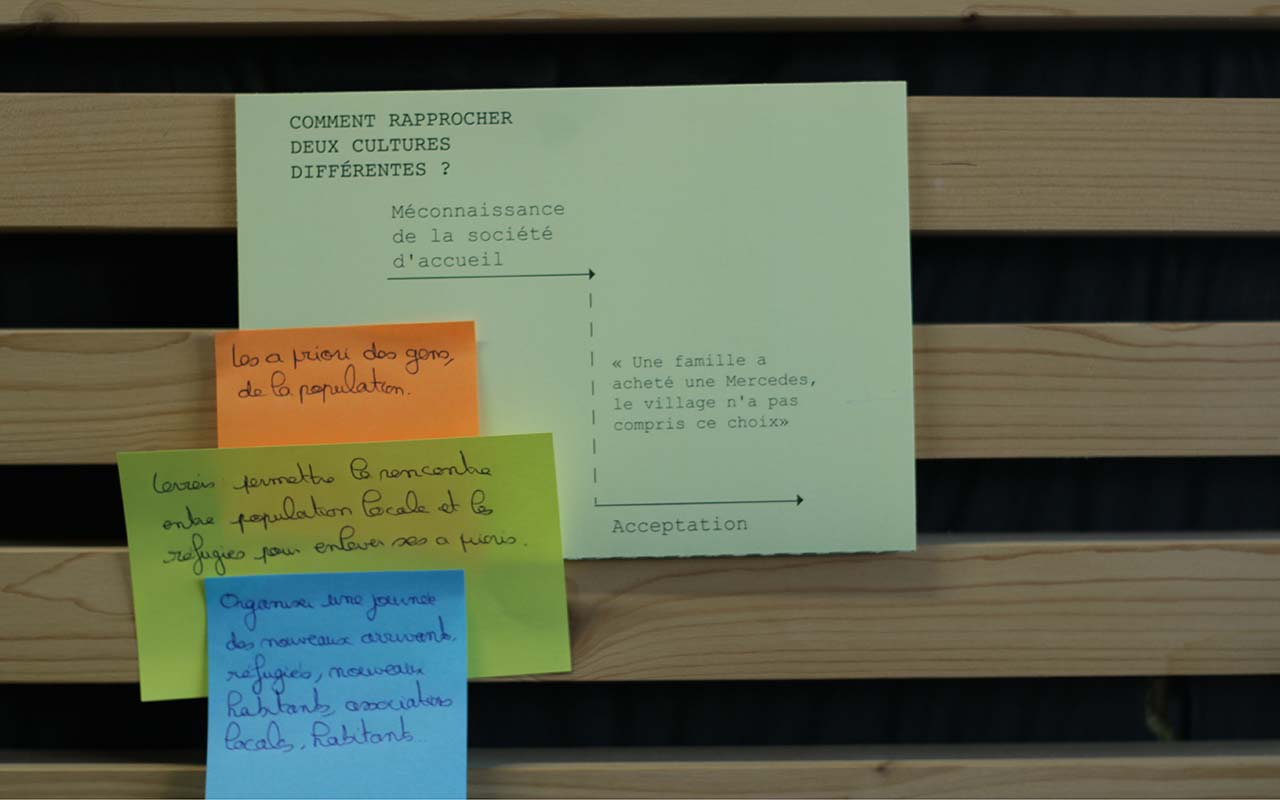 COMMENT RAPPROCHER
DEUX CULTURES
DIFFÉRENTES ?
Méconnaissance
de la société
d'accueil
« Une famille a
acheté une Mercedes,
le village n'a pas
compris ce choix»
Acceptation
les a priori des gens,
de la population.
permettre la rencontre
entre population locale et les
réfugiés pour enlever ses a prioris.
Organiser une journée
des nouveaux arrivants,
réfugiés, nouveaux
habitants, associations
locales, habitants...